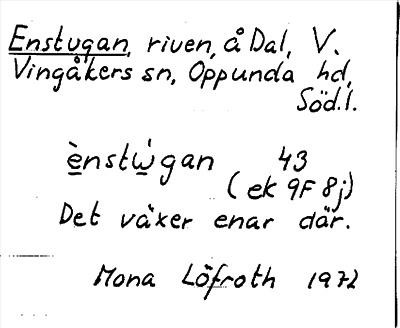 Enstugan, riven, å Dal, V.
Vingåkers sn, Oppunda hd,
Söd.l.
è̲nstẁ̲gan 43
(ek 9F 8j)
Det växer enar där.
Mona Löfroth 1972